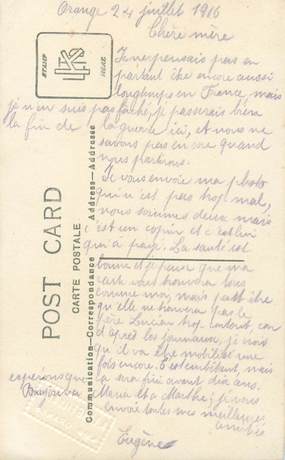 Orange 24 juillet 1916
Chère mère
Je ne pensais pas en
partant être encore aussi
longtemps en France, mais
je n'en suis pas fâché, je passerais bien
la fin de la guerre ici, et nous ne
savons pas encore quand
nous partirons.
Je vous envoie ma photo
qui n'est pas trop mal,
nous sommes deux mais
c'est un copin et c'est lui
qui a payé. La santé est
bonne et je pense que ma
carte vous trouvera tous
comme moi, mais peut être
qu'elle ne trouvera pas le
père Lucien trop content, car
d'après les journaux, je vois
qu'il va être mobilisé une
fois encore. C'est embêtant, mais
espérons que ça sera fini avant dix ans.
Bonjour à Maria et à Marthe, je vous
envoie toutes mes meilleures
amitiés
Eugène
POST CARD
CARTE POSTALE
Communication—Correspondance
Address—Adresse
STAMP
HERE